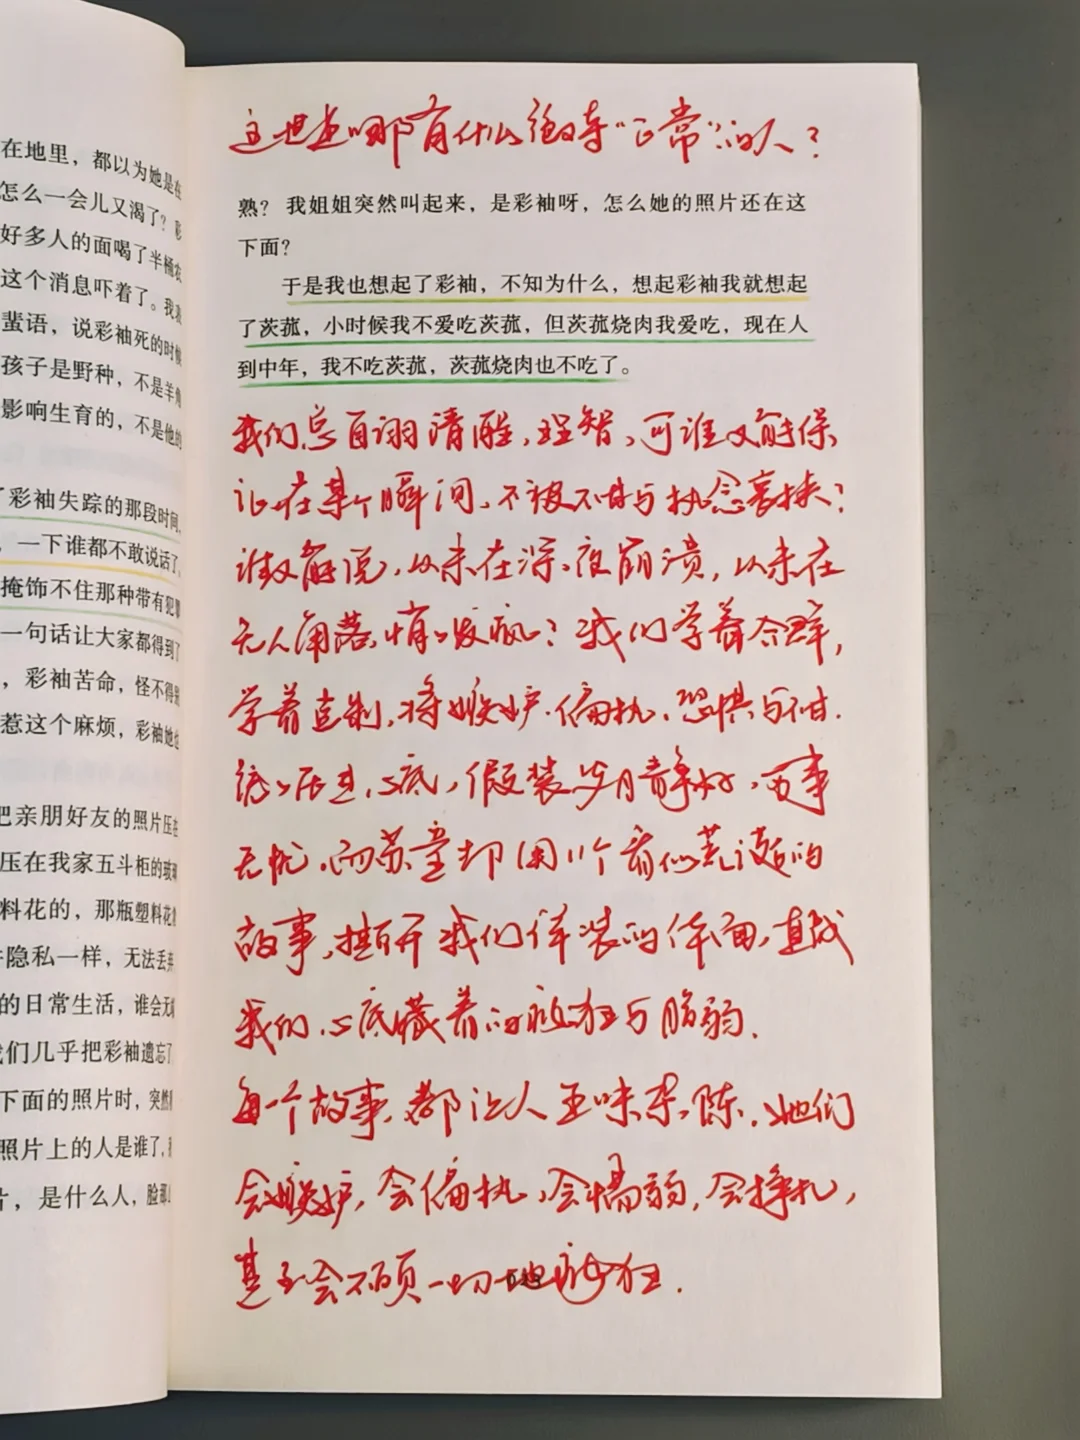 在地里，都以为她是在
怎么一会儿又渴了？彩
好多人的面喝了半桶农
这个消息吓着了。我表
蜚语，说彩袖死的时候
孩子是野种，不是羊角
影响生育的，不是他的
了彩袖失踪的那段时间，
，一下谁都不敢说话了。
掩饰不住那种带有犯罪
一句话让大家都得到了
，彩袖苦命，怪不得别
惹这个麻烦，彩袖她也
把亲朋好友的照片压在
压在我家五斗柜的玻璃
料花的，那瓶塑料花
隐私一样，无法丢弃
的日常生活，谁会无
我们几乎把彩袖遗忘了
下面的照片时，突然
照片上的人是谁了，
片，是什么人，脸那
这世上哪有什么绝对"正常"的人？
熟？我姐姐突然叫起来，是彩袖呀，怎么她的照片还在这
下面？
于是我也想起了彩袖，不知为什么，想起彩袖我就想起
了茨菰，小时候我不爱吃茨菰，但茨菰烧肉我爱吃，现在人
到中年，我不吃茨菰，茨菰烧肉也不吃了。
我们总自诩清醒，理智，可谁又能保
证，在某个瞬间，不被不甘与执念裹挟？
谁又能说，从未在深夜崩溃，从未在
无人角落，悄悄发疯？我们学着合群，
学着克制，将嫉妒、偏执、恐惧与不甘，
统统压进心底，假装岁月静好，万事
无忧，而苏童却用11个看似荒诞的
故事，撕开我们佯装的体面，直戳
我们心底藏着的疯狂与脆弱。
每一个故事，都让人五味杂陈，她们
会嫉妒，会偏执，会懦弱，会挣扎，
甚至会不顾一切地疯狂。